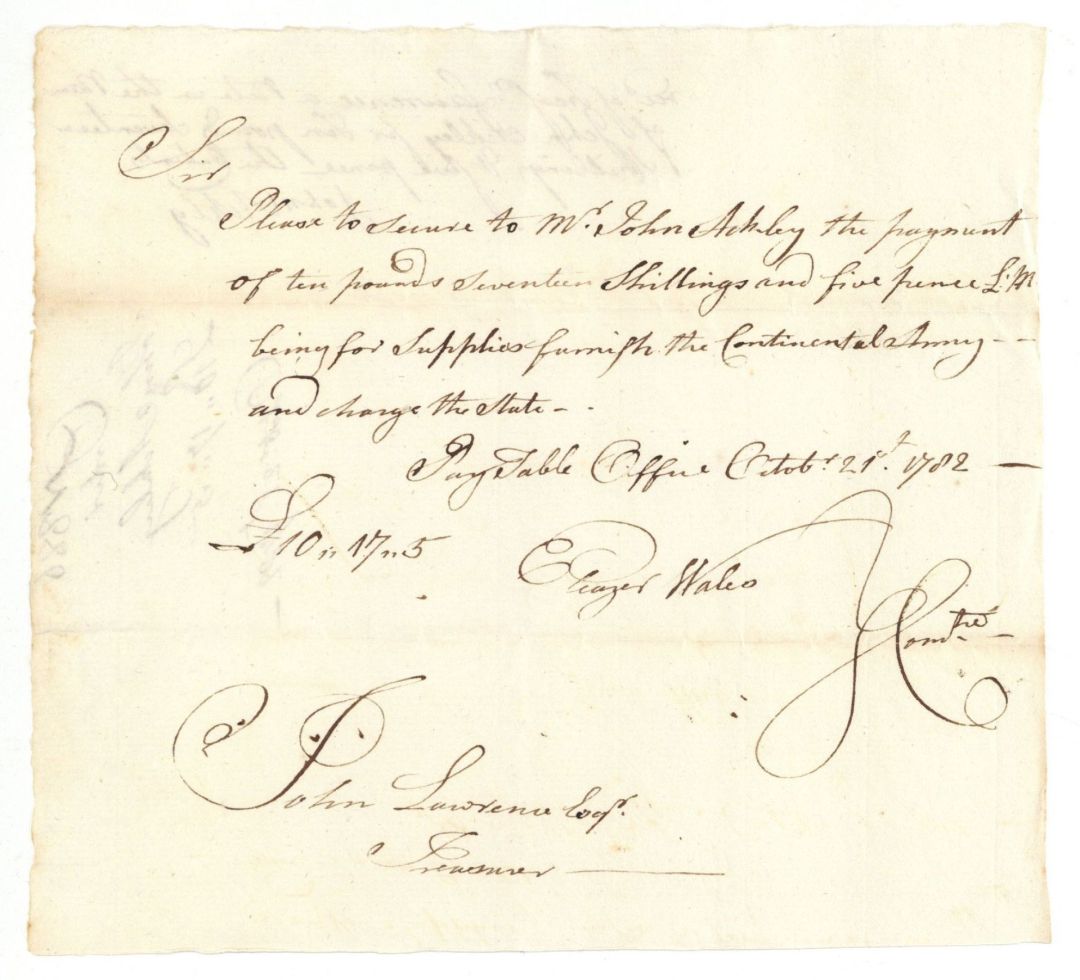 Sir
Please to secure to Mr. John Ackley the payment
of ten pounds seventeen Shillings and five pence L. M
being for Supplies furnish the Continental Army - -
and charge the State - .
Pay Table Office Octobr 21st. 1782 —
£10 " 17 " 5
Eleazer Wales
Comtee —
John Lawrence Esqr.
Treasurer —